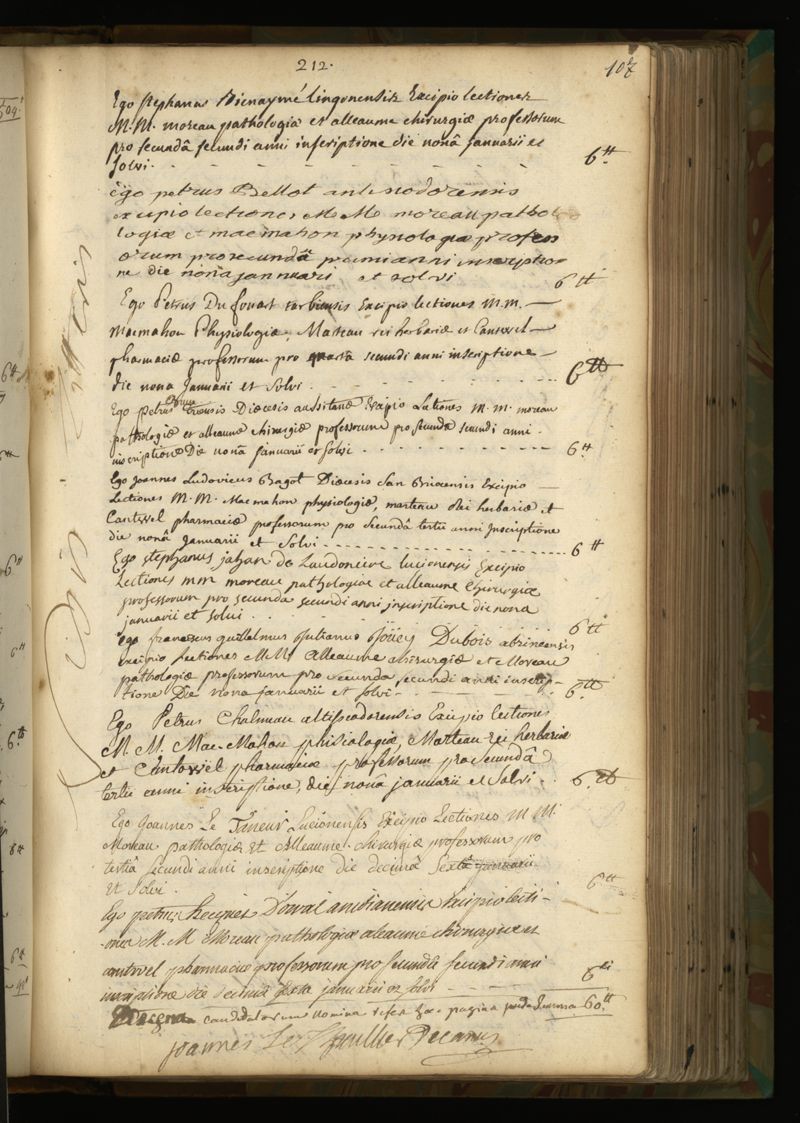 212.
107
Ego stephanus Bienaymé lingonensis Excipio lectiones
M.M. moreau pathologiæ et alleaume chirurgiæ professorum
pro secundâ secundi anni inscriptione die nonâ januarii et
solvi. 6tt
Ego petrus Bellot
excipio lectiones M M moreau patho
logiæ et macmahon physologiæ profess
orum pro secundâ primi anni inscriptio
ne die nonâ januari et solvi 6tt
Ego Petrus Du fouart Excipio lectiones M.M.
Macmahon Physiologiæ, Marteau rei herbariæ et Cantwel
pharmaciæ professorum pro quarta secundi anni inscriptione
die nona Januarii et Solvi. 6tt
Ego petrus Diœcesis Excipio Lectiones M. M. moreau
pathologiæ et alleaume chirurgiæ professorum pro secundâ secundi anni
inscriptione Die nonâ januarii et solvi 6tt
Ego Joannes Ludovicus Bagot Diœcesis San Briocensis Excipio
Lectiones M. M. Macmahon physiologiæ, marteau rei herbariæ et
Cantwel pharmaciæ professorum pro Secundâ tertii anni Inscriptione
die nonâ Januarii et Solvi 6tt
Ego stephanus jahan de Laudonciere lucionensis Excipio
Lectiones mm moreau pathologiæ et alleaume Chirurgiæ
professorum pro secunda secundi anni inscriptione die nona
januarii et solui. 6tt
Ego franciscus guillelmus Julianus Dubois abrincensis
excipio lectiones MM Alleaume chirurgiæ et Moreau
pathologiæ professorum pro secunda secundi anni inscrip-
tione Die nona januarii et solvi 6tt
Ego Petrus Chalmeau altissiodorensis Excipio lectiones
M. M. Mac-Mahon phisiologiæ, Marteau rei herbariæ
et Cantwel pharmaciæ professorum pro secundâ
tertii anni inscriptione, die nonâ januarii et Solvi. 6.tt
Ego Joannes Le Taneur Lucionensis Excipio Lectiones M M.
Moreau pathologiæ et Alleaume chirurgiæ professorum pro
tertiâ secundi anni inscriptione die decimâ Sextâ januarii
et Solvi. 6tt
Ego petrus ambianensis Excipio lecti-
ones M. M Moreau pathologiæ aleaume chirurgiæ et
cantwel pharmaciæ professorum pro secundâ secundi anni
inscriptione die decimâ sexta januarii et solvi 6tt
candidatorum nomina refert hæc pagina Summa 60.tt
joannes Le Thuillier Decanus